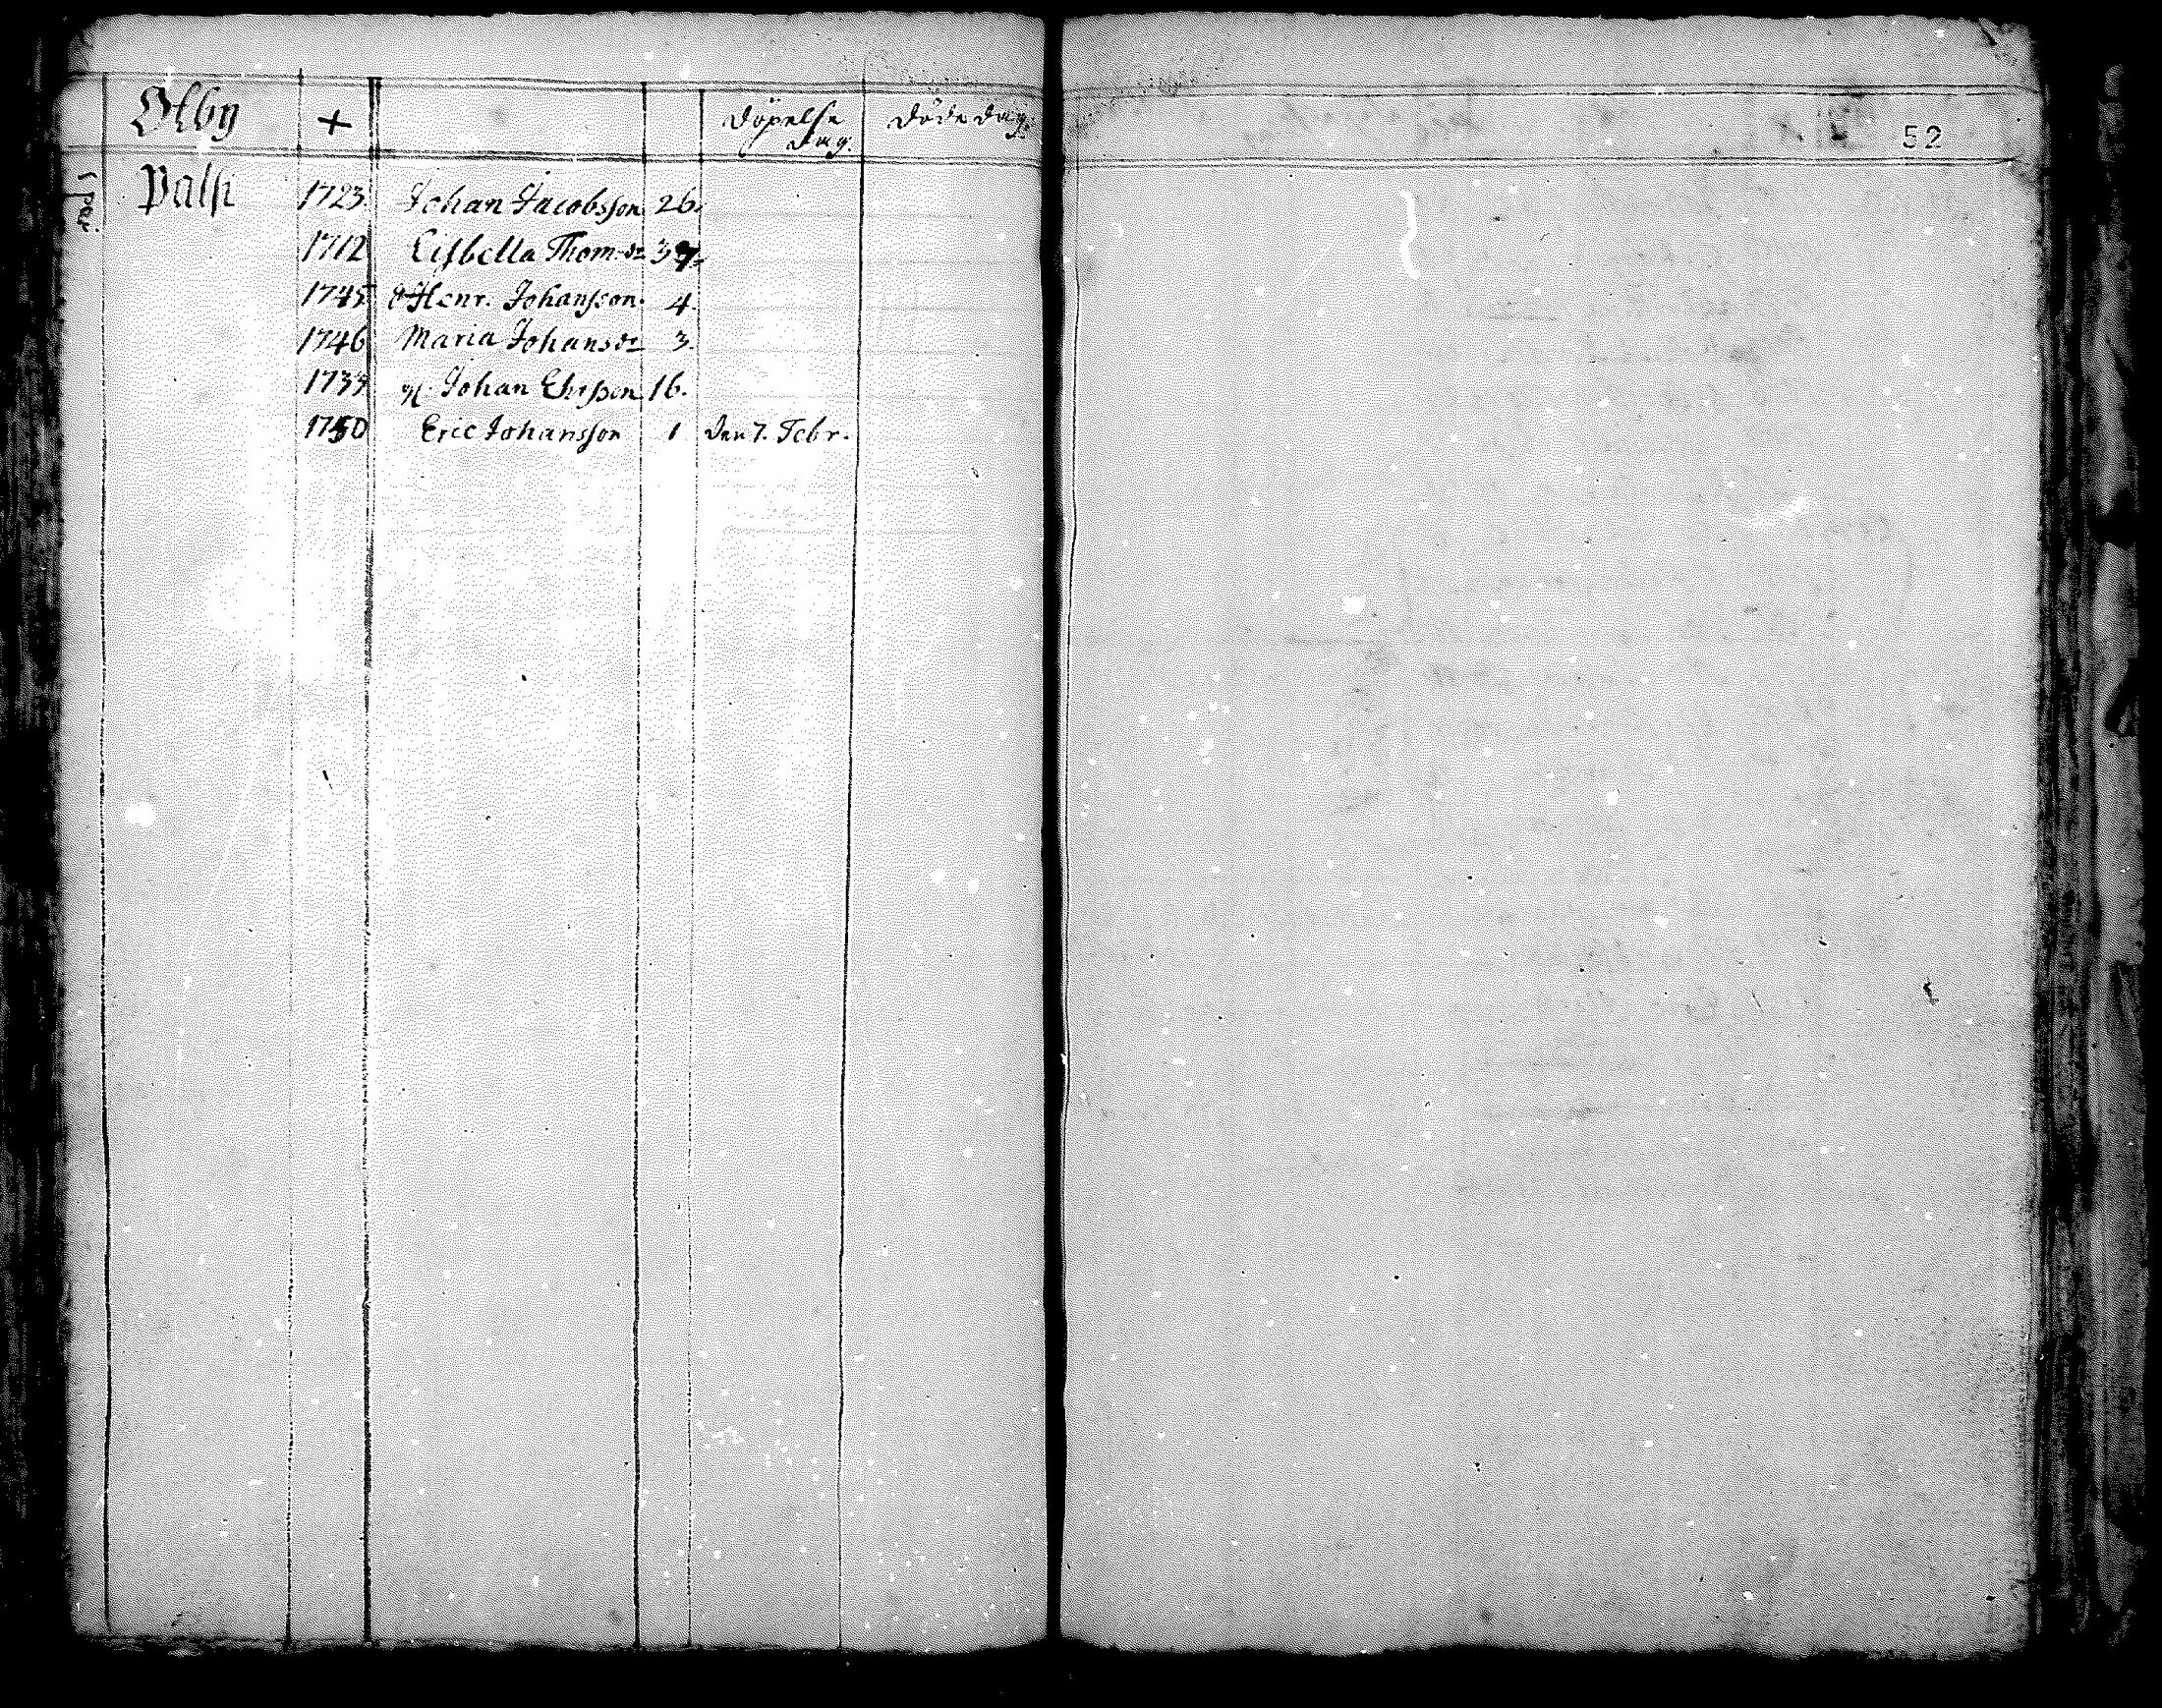 Ölby + Döpelse dag. Döde dag. 52
Palsi 1723. Johan Jacobsson 26.
1712 Lisbella Thom. dr 37.
1745 Henr. Johansson. 4.
1746 Maria Johans dr 3.
1733 Johan Ericsson 16.
1750 Eric Johansson 1 den 7. Febr.